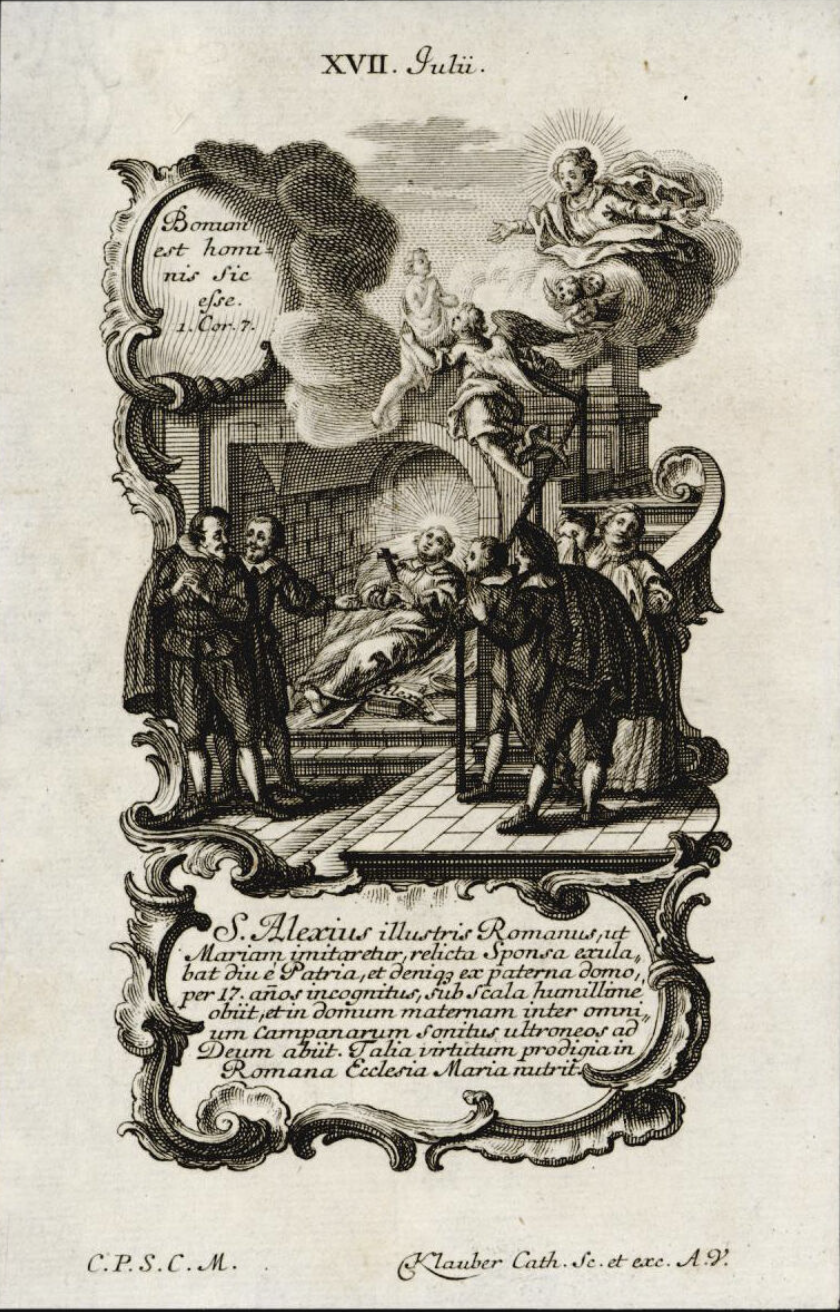 XVII. Julii.
Bonum
est homi=
nis sic
esse.
1. Cor. 7.
S. Alexius illustris Romanus, ut
Mariam imitaretur, relicta Sponsa exula„
bat diu è Patria, et deniqꝫ ex paterna domo,
per 17. años incognitus, sub scala humillime
obiit, et in domum maternam inter omni„
um Campanarum sonitus ultroneos ad
Deum abiit. Talia virtutum prodigia in
Romana Ecclesia Maria nutrit.
C. P. S. C. M.
Klauber Cath. Sc. et exc. A. V.